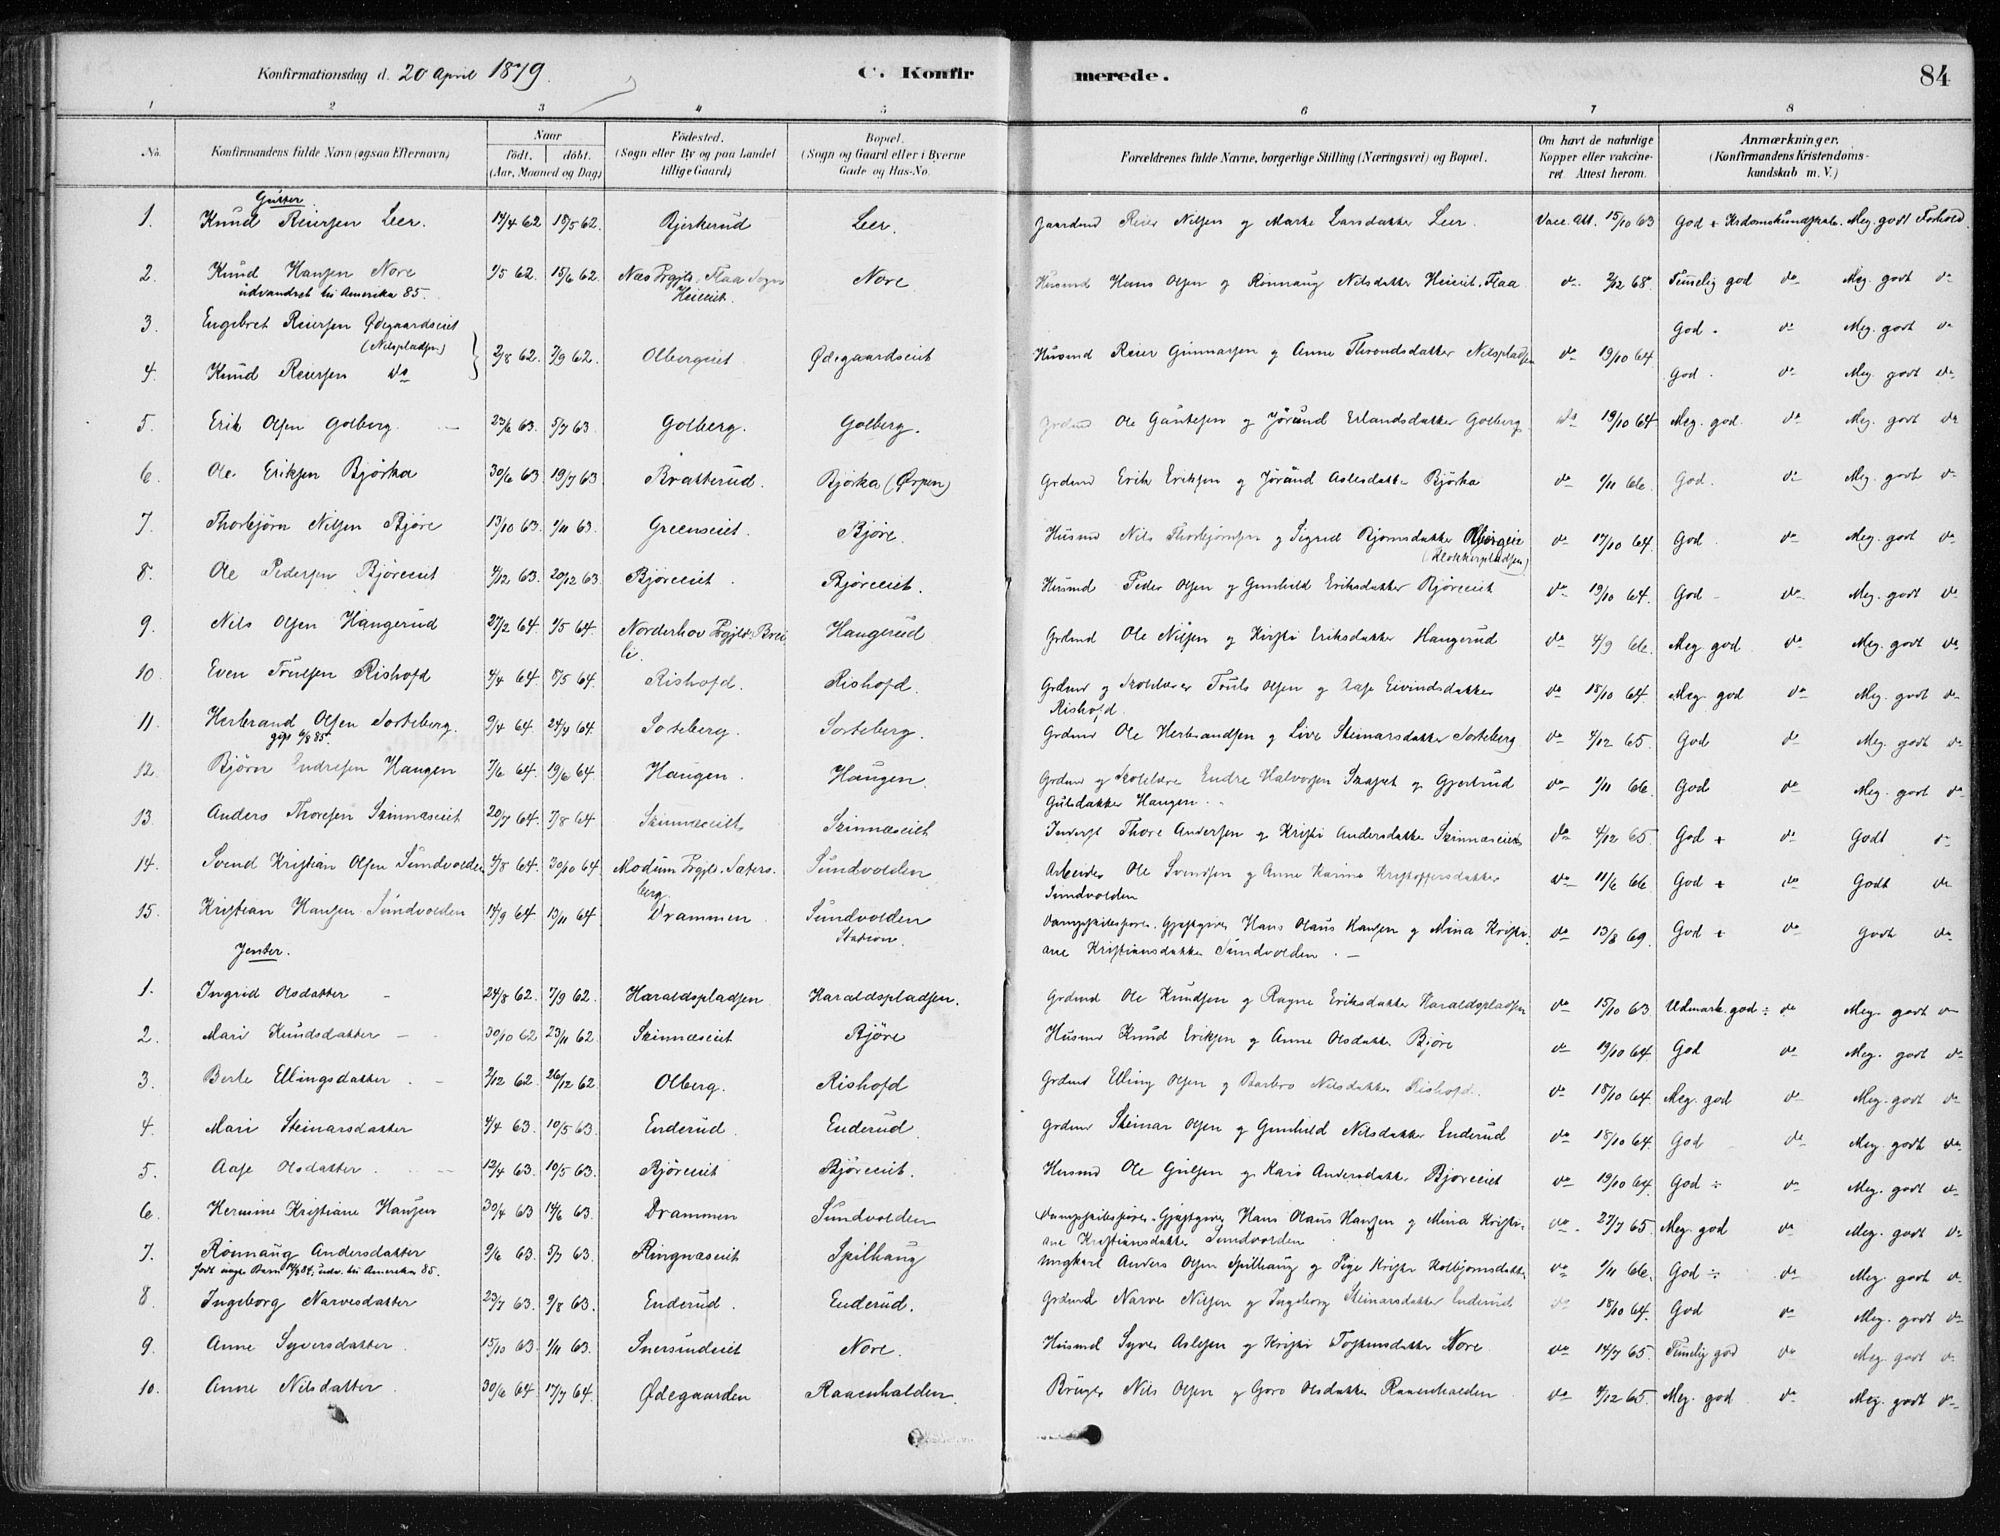 Konfirmationsdag d. 20 April 1879.
C. Konfir merede. 84
1 2 3 4 5 6 7 8
No. Konfirmandens fulde Navn (ogsaa Efternavn) Naar født. døbt. (Aar, Maaned og Dag) Fødested. (Sogn eller By og paa Landet tillige Gaard) Bopæl. (Sogn og Gaard eller i Byerne Gade og Hus-No. Forældrenes fulde Navne, borgerlige Stilling (Næringsvei) og Bopæl. Om havt de naturlige Kopper eller vakcineret. Attest herom. Anmærkninger. (Konfirmandens Kristendomskundskab m. V.)
Gutter.
1. Knud Reiersen Leer. 14/4 62 18/5 62. Bjerkerud Leer. Gaardmd Reier Nilsen og Marte Larsdatter Leer. Vacc. Att. 15/10 63 God + Krdomskundskab. Meg. godt Forhold
2. Knud Hansen Nore 15/6 62. Næs Prgjld. Flaa Sogn Heieiet. Nore. Husmd Hans Olsen og Rønnaug Nilsdatter Heieiet. Flaa do 2/12 68. Temelig god do Meg. godt do
udvandret til Amerika 85.
3. Engebret Reiersen Ødegaardseiet God. do Meg. godt do
(Nilspladsen)
2/8 62. 7/9 62. Olbergeiet Ødegaardseiet Husmd Reier Gunnarsen og Anne Throndsdatter Nilspladsen do 19/10 64
4. Knud Reiersen do God. do Meg. godt do
5. Erik Olsen Golberg. 23/6 63. 5/7 63. Golberg. Golberg. Grdmd Ole Gautesen og Jørund Erlandsdatter Golberg. do 19/10 64 Meg. god. do Meg. godt do
6. Ole Eriksen Bjørka 30/6 63. 19/7 63. Bratterud. Bjørka (Ørpen) Grdmd Erik Eriksen og Jørand Aslesdatter Bjørka do 1/11 66. God. do Meg. godt do
7. Thorbjørn Nilsen Bjøre 13/10 63. 1/11 63. Greenseiet. Bjøre. Husmd Nils Thorbjørnsen og Sigrid Bjørnsdatter do 17/10 64. God do Meg. godt do
(Klokkerpladsen)
8. Ole Pedersen Bjøreeiet 4/12 63. 20/12 63. Bjøreeiet. Bjøreeiet. Husmd Peder Olsen og Gunhild Eriksdatter Bjøreeiet do 19/10 64. God do Meg. godt do
9. Nils Olsen Haugerud 27/2 64. 1/5 64. Norderhov Prgjld. Breili. Haugerud Grdmd Ole Nilsen og Kirsti Eriksdatter Haugerud do 4/9 66. Meg. god. do Meg. godt do
10. Even Trulsen Rishofd 4/4 64. 8/5 64. Rishofd. Rishofd. Grdmd og Skolelærer Truls Olsen og Aase Eivindsdatter Rishofd. do 18/10 64. Meg. god do Meg. godt do
11. Herbrand Olsen Sorteberg. 9/4 64. 24/4 64. Sorteberg. Sorteberg. Grdmd Ole Herbrandsen og Live Steinarsdatter Sorteberg. do 4/12 65. God do Meg. godt do
gift 6/8 85.
12. Bjørn Endresen Haugen 7/6 64. 19/6 64. Haugen. Haugen. Grdmd og Skolelære Endre Halvorsen Skapet og Gjertrud Gulsdatter Haugen. do 1/11 66. God do Meg. godt do
13. Anders Thoresen Skinnæseiet 20/7 64. 7/8 64. Skinnæseiet. Skinnæseiet Inderst Thore Andersen og Kristi Andersdatter Skinnæseiet do 4/12 65. God + do Godt do
14. Svend Kristian Olsen Sundvolden 3/8 64. 30/10 64. Modum Prgjld. Satersberg. Sundvolden Arbeider Ole Svendsen og Anne Karine Kristoffersdatter Sundvolden do 11/6 66. God + do Godt do
15. Kristian Hansen Sundvolden 14/9 64. 13/11 64 Drammen Sundvolden Station. Dampskibsfører. Gjæstgiver Hans Olaus Hansen og Mina Kristiane Kristiansdatter Sundvolden. do 13/8 69. God + do Godt do
Jenter.
1. Ingrid Olsdatter 24/8 62. 7/9 62. Haraldspladsen Haraldspladsen. Grdmd Ole Knudsen og Ragne Eriksdatter Haraldspladsen do 15/10 63 Udmark. god ÷ do Meg. godt do
2. Mari Knudsdatter 30/10 62 23/11 62 Skinnæseiet Bjøre Husmd Knud Eriksen og Anne Olsdatter Bjøre do 19/10 64. God do Meg. godt do
3. Berte Ellingsdatter. 2/12 62. 26/12 62 Olberg. Rishofd Grdmd Elling Olsen og Barbro Nilsdatter Rishofd. do 18/10 64. Meg. god do Meg. godt do
4. Mari Steinarsdatter 4/4 63. 10/5 63. Enderud. Enderud. Grdmd Steinar Olsen og Gunhild Nilsdatter Enderud do 18/10 64. God do Meg. godt do
5. Aase Olsdatter. 12/4 63. 10/5 63. Bjøreeiet Bjøreeiet. Husmd Ole Gulsen og Kari Andersdatter Bjøreeiet do 19/10 64. God ÷ do Meg. godt do
6. Hermine Kristiane Hansen 30/4 63 14/6 63. Drammen Sundvolden Dampskibsfører. Gjæstgiver Hans Olaus Hansen og Mina Kristiane Kristiansdatter Sundvolden do 27/7 65. Meg. god do Meg. godt do
7. Rønnaug Andersdatter 9/6 63. 5/7 63. Ringnæseiet Spilhaug Ungkarl Anders Olsen Spilhaug og Pige Kristi Kolbjørnsdatter do 1/11 66. God ÷ do Meg. godt do
født uægte Barn 84, udv. til Amerika 85.
8. Ingeborg Narvesdatter 23/7 63. 9/8 63. Enderud. Enderud. Grdmd Narve Nilsen og Ingeborg Steinarsdatter Enderud do 18/10 64. God do Meg. godt do
9. Anne Syversdatter. 15/10 63. 1/11 63. Snersrudeiet Nore. Husmd Syver Aslesen og Kristi Tostensdatter Nore do 14/7 65. Temelig god do Meg. godt do
10. Anne Nilsdatter. 30/6 64. 17/7 64. Ødegaarden Raaenhalden. Bruger Nils Olsen og Goro Olsdatter Raaenhalden do 4/12 65. Meg. god do Meg. godt do